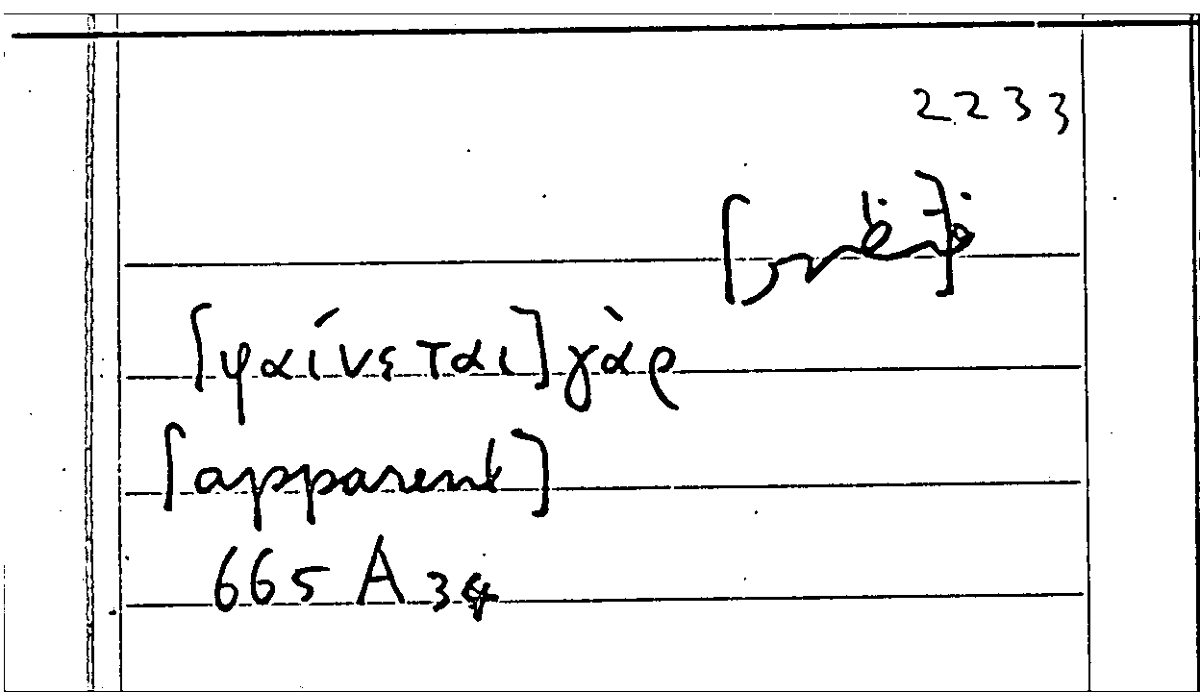 2233
[φαίνεται] γὰρ
[apparent]
665 A 34